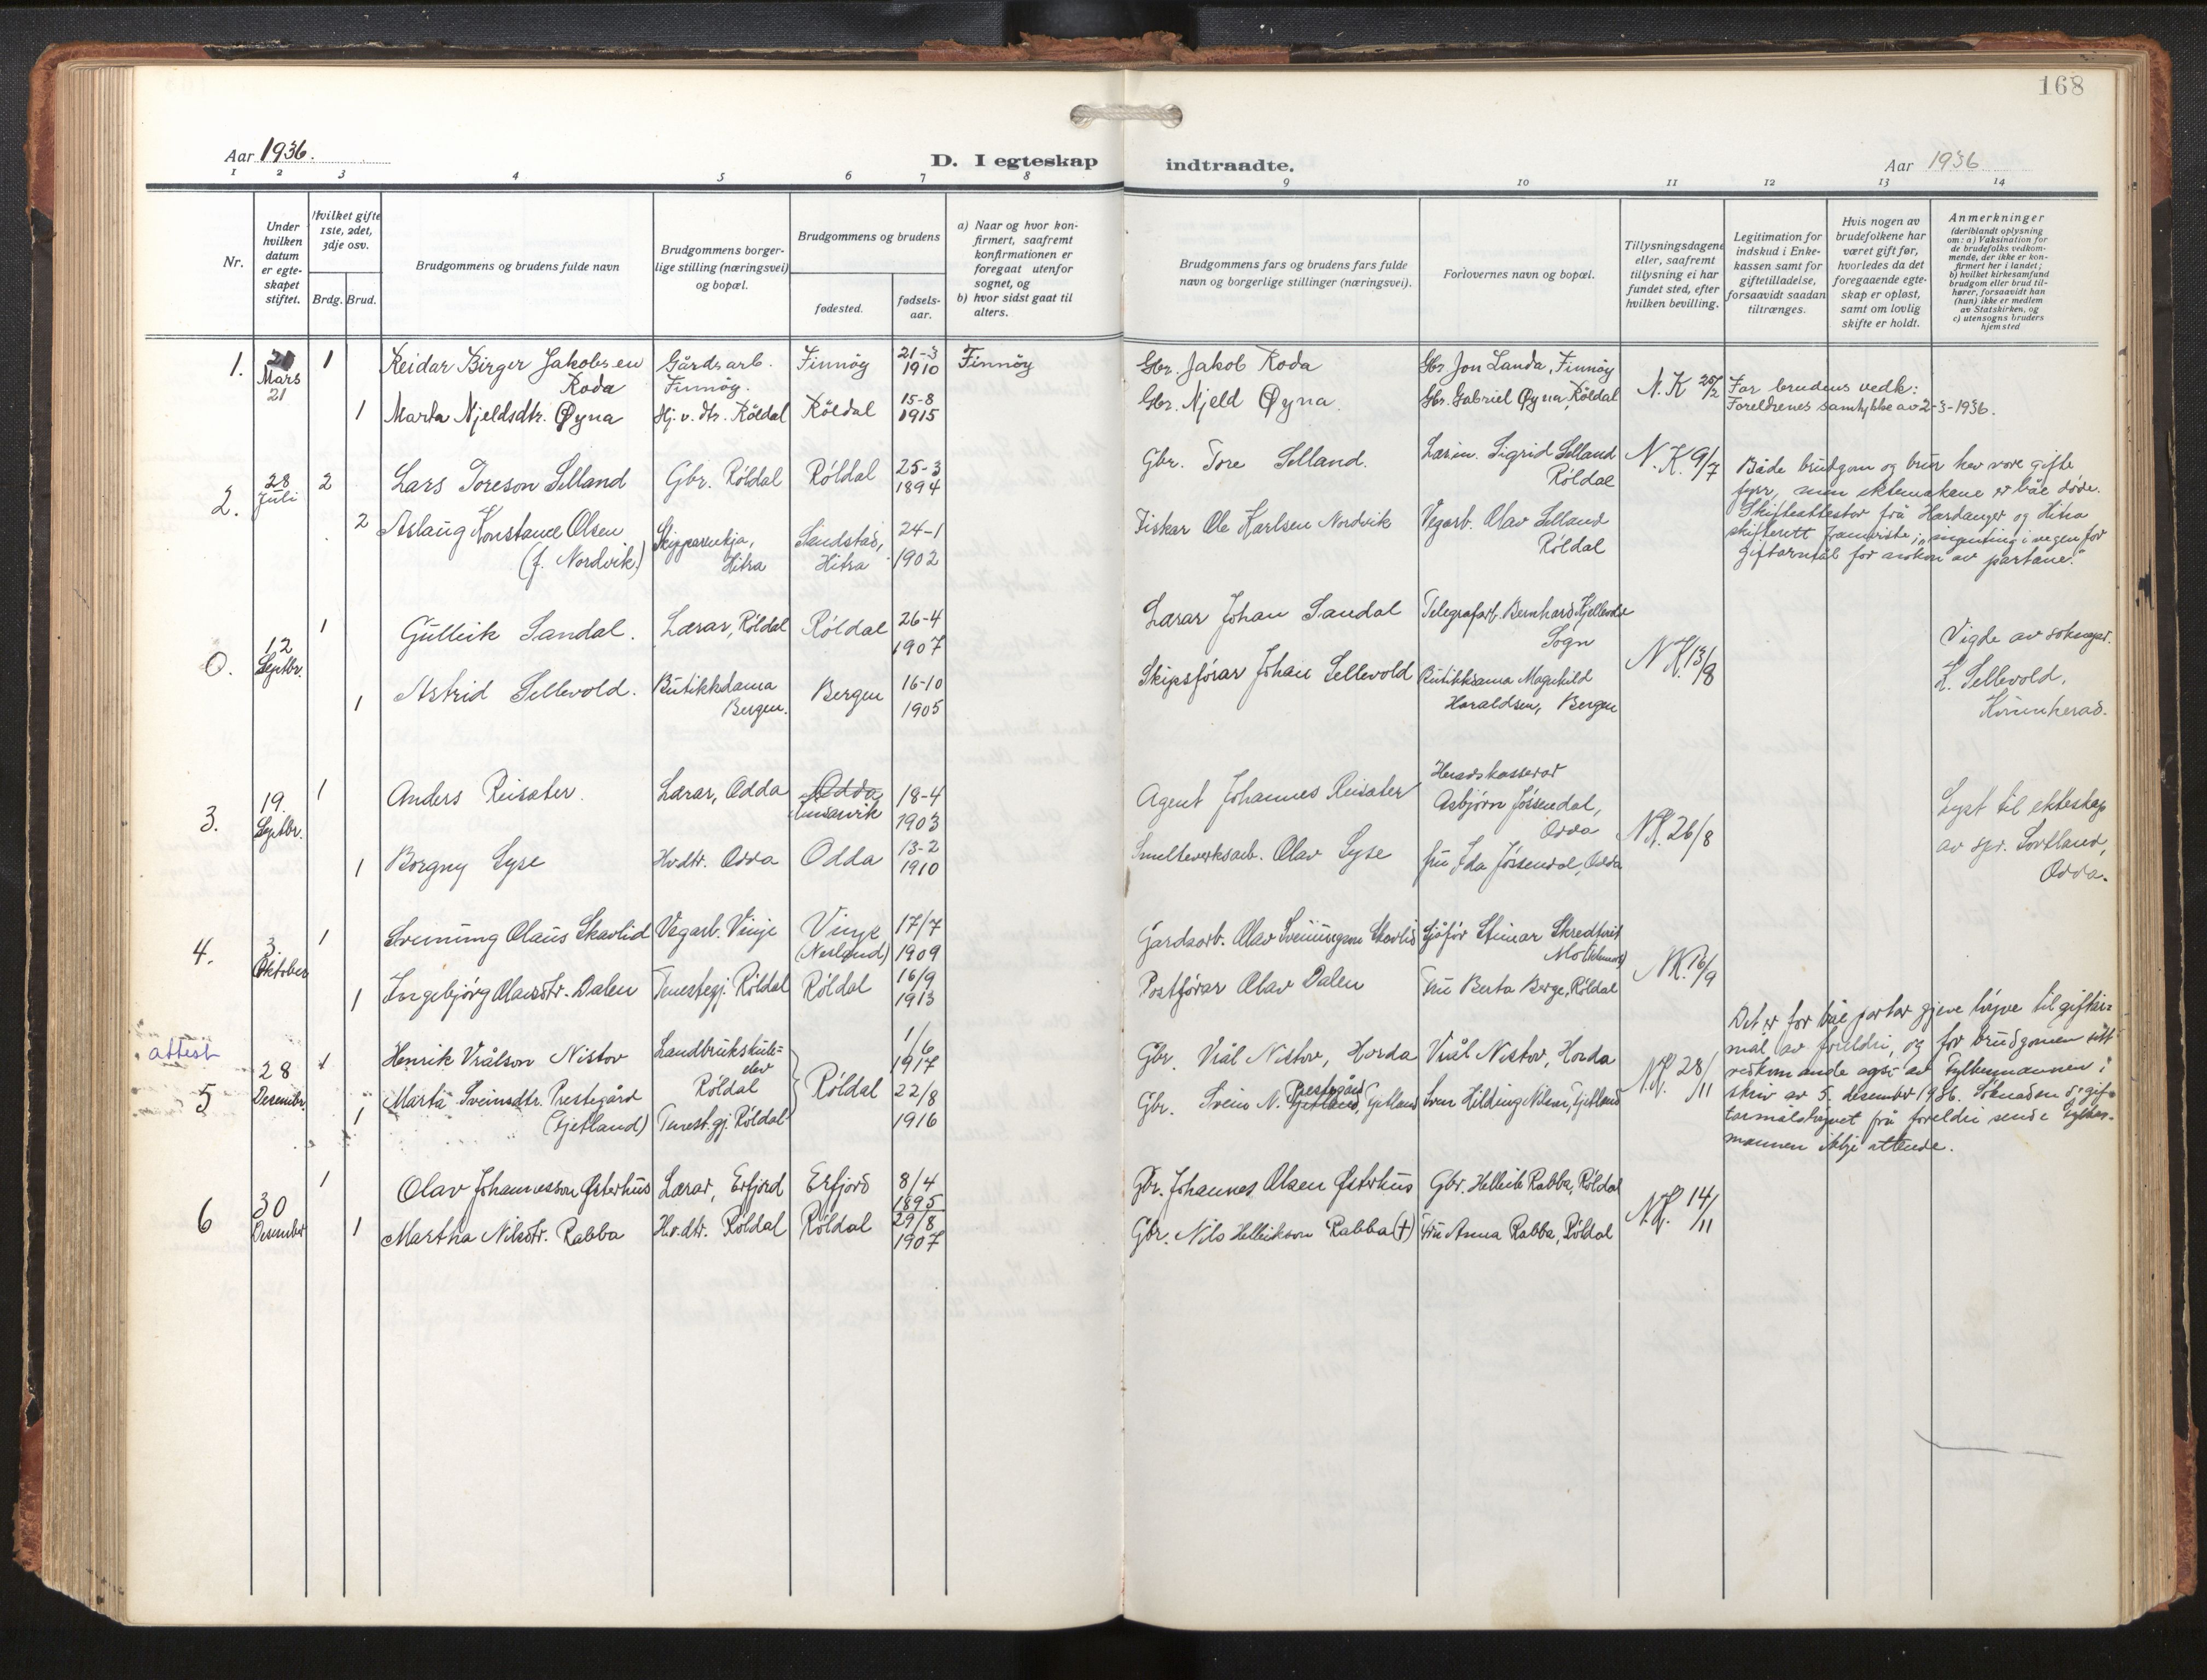 168
Aar 1936.
D. I egteskap indtraadte.
Aar 1936
1 2 3 4 5 6 7 8 9 10 11 12 13 14
Nr.
Under hvilken datum er egteskapet stiftet.
Hvilket gifte 1ste, 2det, 3dje osv.
Brdg. Brud.
Brudgommens og brudens fulde navn
Brudgommens borgerlige stilling (næringsvei) og bopæl.
Brudgommens og brudens
fødested.
fødselsaar.
a) Naar og hvor konfirmert, saafremt konfirmationen er foregaat utenfor sognet, og
b) hvor sidst gaat til alters.
Brudgommens fars og brudens fars fulde navn og borgerlige stillinger (næringsvei).
Forlovernes navn og bopæl.
Tillysningsdagene eller, saafremt tillysning ei har fundet sted, efter hvilken bevilling.
Legitimation for indskud i Enkekassen samt for giftetilladelse, forsaavidt saadan tiltrænges.
Hvis nogen av brudefolkene har været gift før, hvorledes da det foregaaende egteskap er opløst, samt om lovlig skifte er holdt.
Anmerkninger
(deriblandt oplysning om: a) Vaksination for de brudefolks vedkommende, der ikke er konfirmert her i landet; b) hvilket kirkesamfund brudgom eller brud tilhører, forsaavidt han (hun) ikke er medlem av Statskirken, og c) utensogns bruders hjemsted
1. Mars 21 1 Reidar Birger Jakobsen Roda Gårdsarb. Finnøy. Finnöy 21-3 1910 Finnöy Gbr. Jakob Roda Gbr. Jon Landa, Finnöy
1 Marta Njeldsdtr. Øyna Hj. v. dtr. Röldal Röldal 15-8 1915 Gbr. Njeld Øyna. Gbr. Gabriel Øyna, Röldal N. K 25/2 For brudens vedk:
Foreldrenes samtykke av 2-3-1936.
2. 28 Juli 2 Lars Toreson Selland Gbr. Röldal Röldal 25-3 1894 Gbr. Tore Selland. Lærin. Sigrid Selland Röldal N. K. 9/7
2 Aslaug Konstanse Olsen (f. Nordvik.) Skipparenkja, Hitra Sandstad, Hitra 24-1 1902 Fiskar Ole Karlsen Nordvik Vegarb. Olav Selland Röldal
Både brudgom og brur hev vore gifte
fyrr, men ektemakane er båe döde.
Skifteattestar frå Hardanger og Hitra
skifterett framviste; "ingenting i vegen for
giftarmål for nokon av partane."
0. 12 Septbr. 1 Gullik Sandal. Lærar, Röldal Röldal 26-4 1907 Lærar Johan Sandal Telegrafarb. Bernhard Sogn N K 13/8
1 Astrid Sellevold. Butikkdama Bergen. Bergen 16-10 1905 Skipsförar Johan Sellevold Butikkdama Magnhild Haraldsen, Bergen
Vigde av soknepr.
K. Sellevold,
Kvinnherad.
3. 19. Septbr. 1 Anders Reisæter. Lærar, Odda Odda 18-4 1903 Agent Johannes Reisæter Heradskasserar Asbjørn Jösendal, Odda N.K. 26/8
1 Borgny Syse Hvdtr. Odda Odda 13-2 1910 Smelteverksarb. Olav Syse fru Ida Jösendal, Odda
Lyst til ekteskap
av spr. Sortland,
Odda.
4. 3. Oktober 1 Sveinung Olaus Skavlid Vegarb. Vinje Vinje 17/7 1909 Gardsarb. Olav Sveinungson Skavlid Sjåför Steinar
1 Ingebjörg Olavsdtr. Dalen Tenestegj. Röldal Röldal 16/9 1913 Postförar Olav Dalen Fru Berta Berge, Röldal N.K. 16/9
attest
5 28 Desember. 1 Henrik Vrålson Nistov Landbruksskule= elev Röldal Röldal 1/6 1917 Gbr. Vrål Nistov, Horda Vrål Nistov, Horda N.K. 28/11
1 Marta Sveinsdtr. Prestegård (Gjetland) Tenest.gj. Röldal 22/8 1916 Gbr. Svein N. Prestegård Gjetland Sven Hilding Nilsen, Gjetland
Det er for båe partar gjeve löyve til giftar=
mål av foreldri, og for brudgomen vidkomande også av Fylkesmannen i
skriv av 5. desember 1936. Söknaden og gif=
tarmålslöyvet frå foreldri sende Fylkes-
mannen ikkje attende.
6 30 Desember 1 Olav Johannesson Østerhus Lærar, Erfjord Erfjord 8/4 1895 Gbr. Johannes Olsen Østerhus Gbr. Hellik Rabba, Röldal N.K. 14/11
1 Martha Nilsdtr. Rabba Hv.dtr. Röldal Röldal 29/8 1907 Gbr. Nils Hellikson Rabba (†) Fru Anna Rabba, Röldal